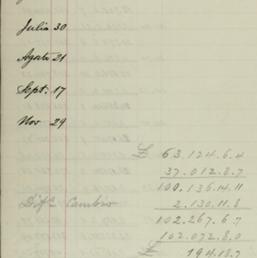 Julio 30
Agosto 21
Sept. 17
Nov 29
£ 63.124.6.4
37.012.8.7
100.136.14.11
Difa Cambio 2.130.11.8
102.267.6.7
102.072.8.0
£ 194.18.7